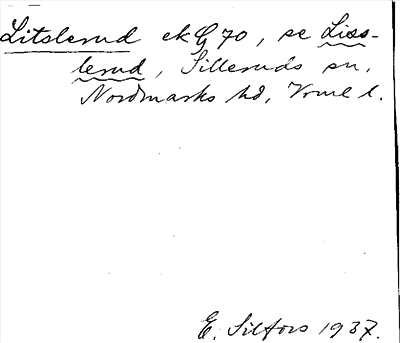 Litslerud ek G 70, se Liss-
lerud, Silleruds sn,
Nordmarks hd, Vrml l.
E. Silfors 1937.